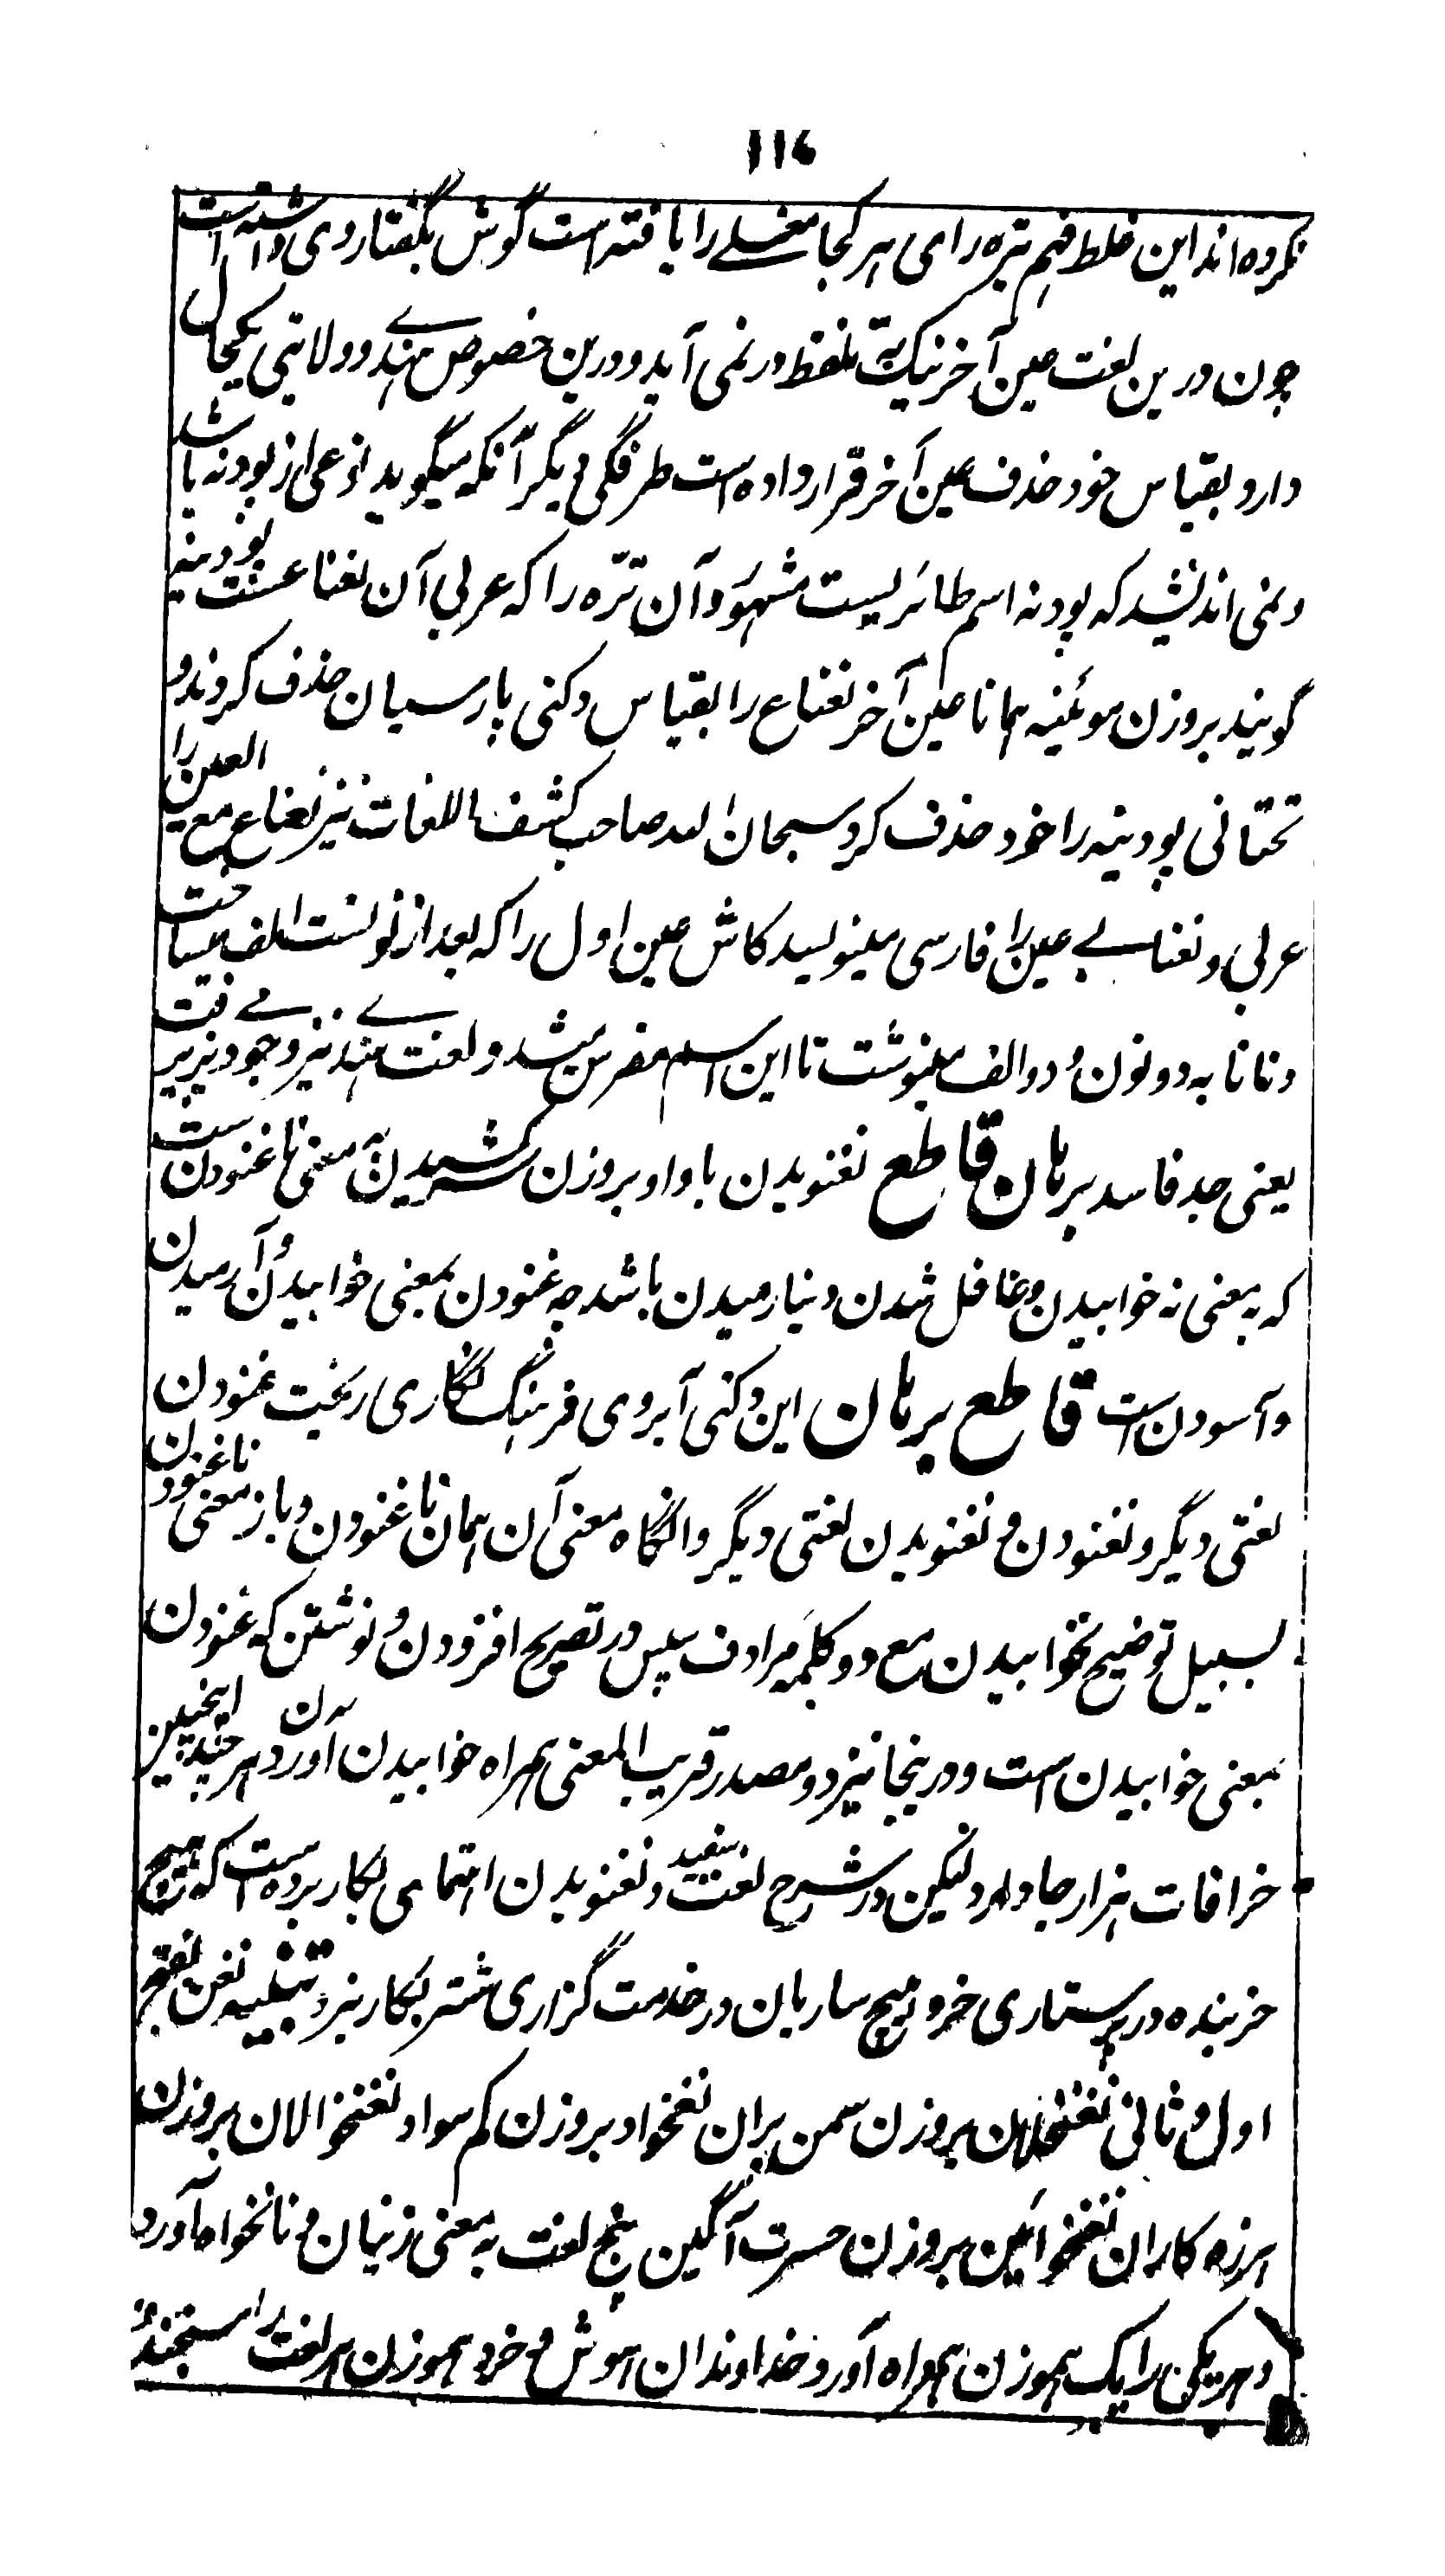 ۱۱۶
نکرده اند این غلط فهم تیره رای هر کجا مغلے را یافته است گوش بگفتار وی داشته است
چون درین لغت عین آخر نیک به تلفظ در نمی آید و درین خصوص هندے و ولایتی یکحال
دارد بقیاس خود حذف عین آخر قرار داده است طرفگی دیگر آنکه میگوید نوعی از پودنه باشد
و نمی اندیشد که پودنه اسم طائریست مشهور و آن تره را که عربی آن نعناعست پودینه
گویند بروزن موئینه همانا عین آخر نعناع را بقیاس دکنی پارسیان حذف کردند و
تحتانی پودینه را خود حذف کرد سبحان الله صاحب کشف اللغات نیز نعناع مع العین را
عربی و نعنا بے عین را فارسی مینویسد کاش عین اول را که بعد از نونست الف میساخت
و نانا به دو نون و دو الف مینوشت تا این اسم مفرس میشد و لغت هندے نیز وجود پذیر مے فت
یعنی جد فاسد برهان قاطع نغنویدن با واو بروزن نشنیدن به معنی ناغنودن ست
که به معنی نه خوابیدن و غافل شدن و نیارمیدن باشد چه غنودن بمعنی خوابیدن و آرمیدن
و آسودن است قاطع برهان این دکنی آبروی فرهنگ نگاری ریخت غنودن
لغتی دیگر و نغنودن و نغنویدن لغتی دیگر وانگاه معنی آن همان ناغنودن و باز معنی ناغنودن
بسبیل توضیح نخوابیدن مع دو کلمه مرادف سپس در تصریح افزودن و نوشتن که غنودن
بمعنی خوابیدن است و درینجا نیز دو مصدر قریب المعنی همراه خوابیدن آوردن هر چند اینچنین
خرافات هزار جا دارد لیکن در شرح لغت سفید و نغنویدن اهتمامی بکار برده است که هیچ
خربنده در پرستاری خر و هیچ ساربان در خدمت گزاری شتر بکار نبرد تنبیه نغن بفتح
اول و ثانی نغنخلان بروزن سمن بران نغنخواد بروزن کم سواد نغنخوالان بروزن
هرزه کاران نغنخوائین بروزن حسرت آگین پنج لغت به معنی زنیان و نانخواه آورد
و هر یکی را یک هموزن همراه آورد خداوندان هوش و خرد هموزن هر لغت را سنجند